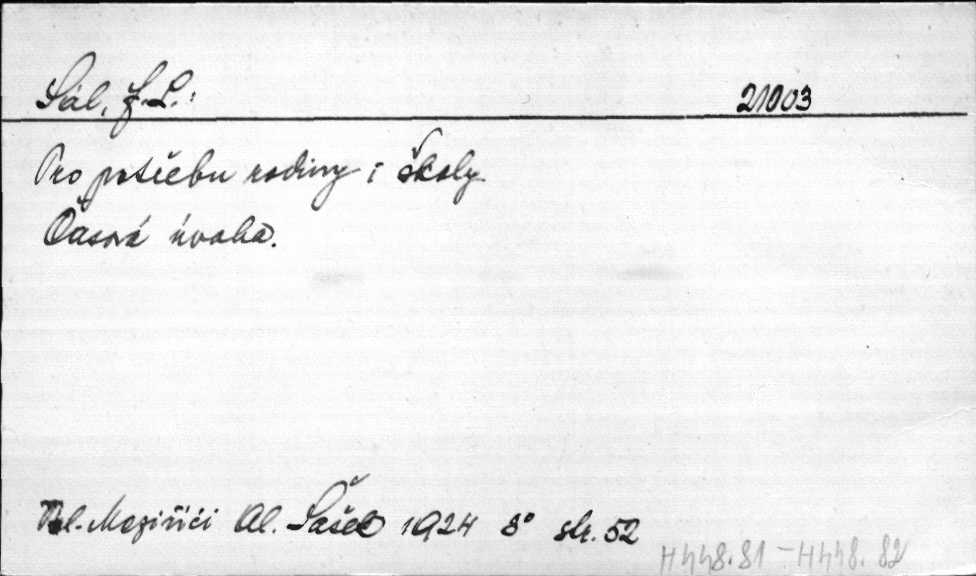 Sál, J. L.: 21003
Pro potřebu rodiny i školy.
Časová úvaha.
Vel. Meziříčí Al. Šašek 1924 8° str. 52
H448.81 - H448.82